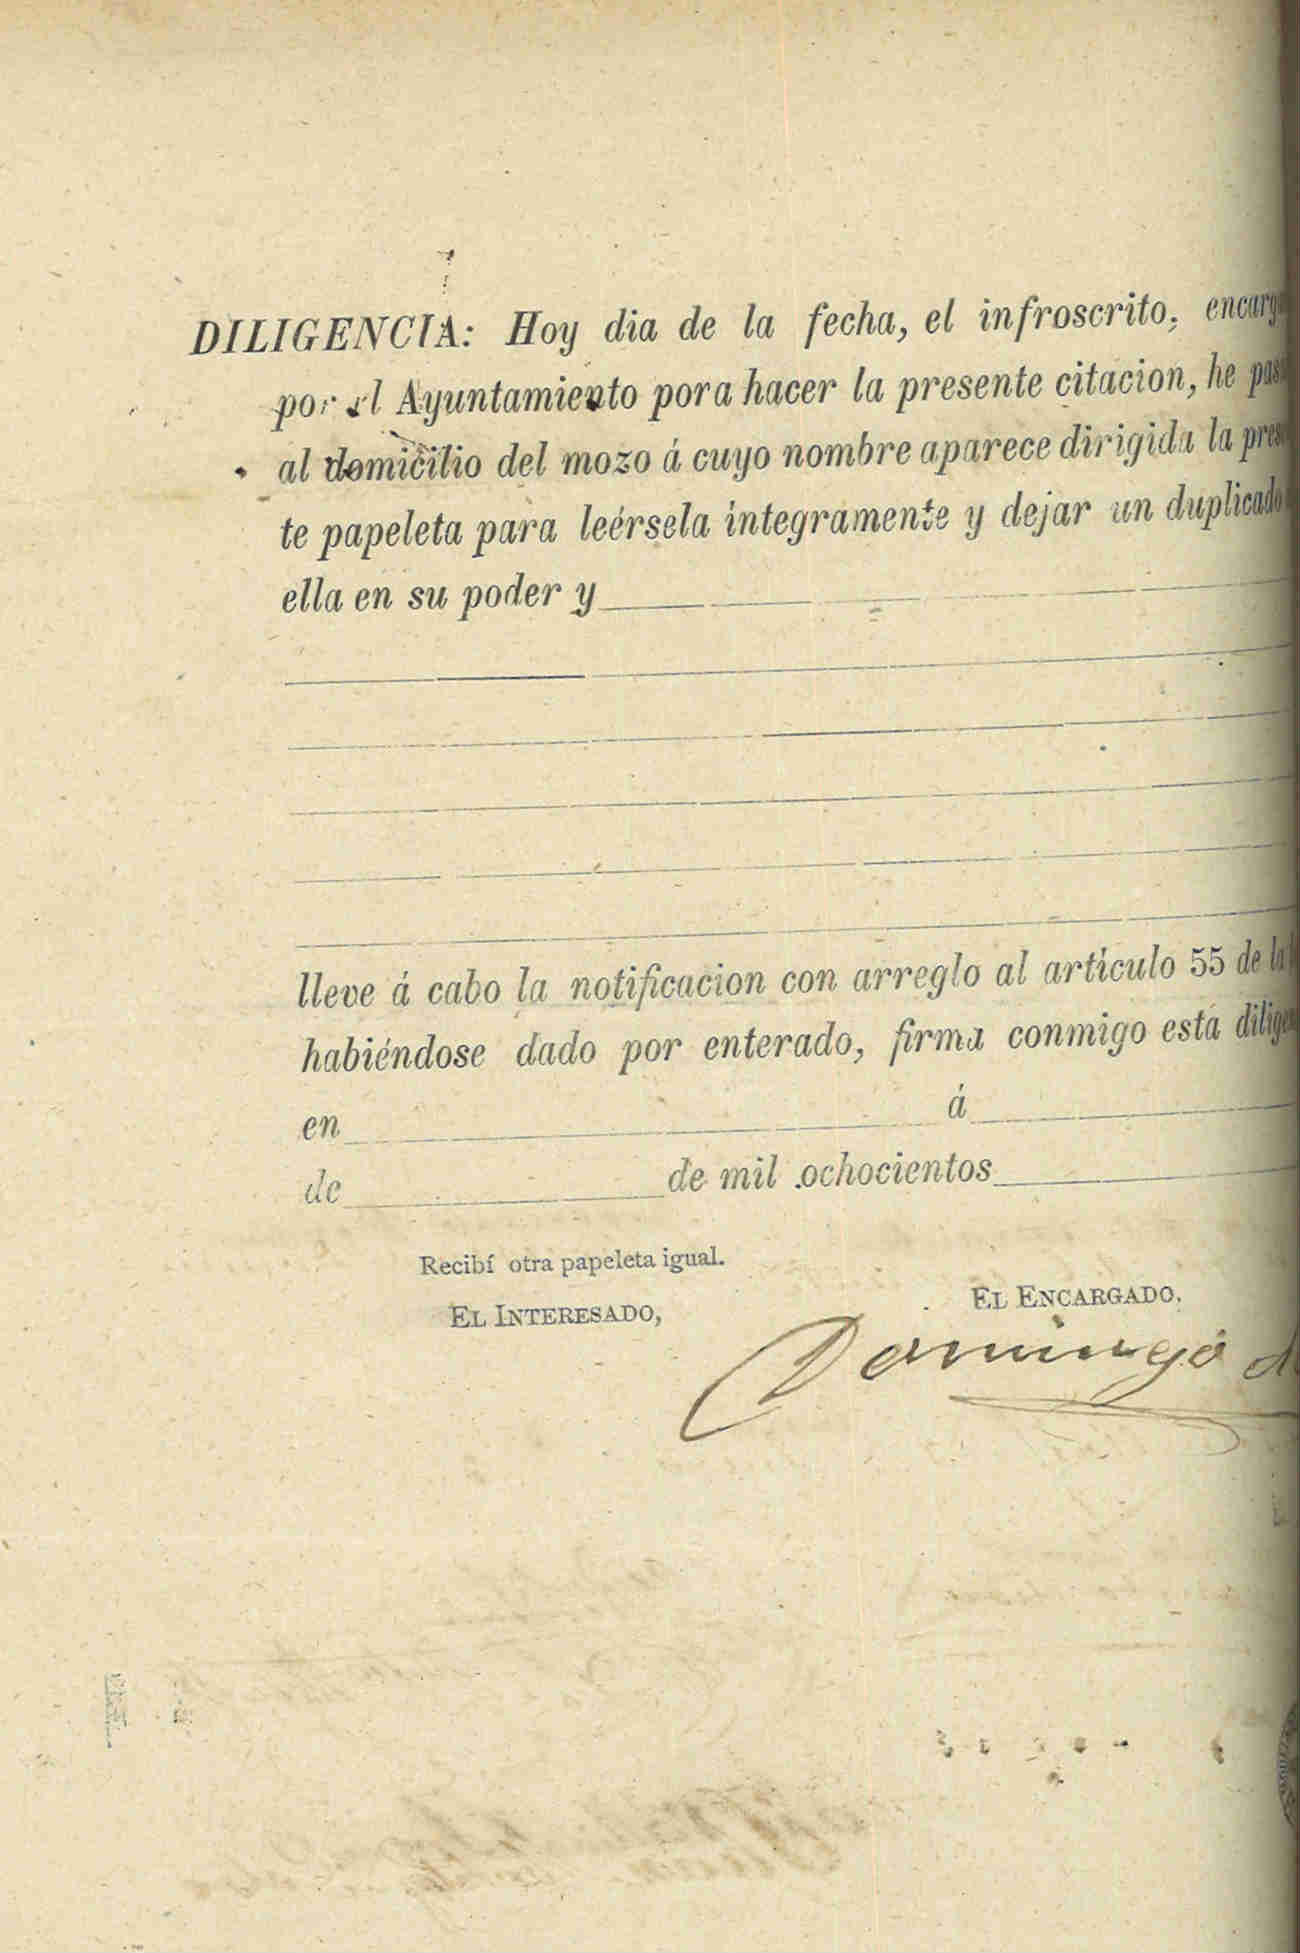 DILIGENCIA: Hoy dia de la fecha, el infroscrito, encarg
por el Ayuntamiento pora hacer la presente citacion, he pas
al domicilio del mozo á cuyo nombre aparece dirigida la pres
te papeleta para leérsela integramente y dejar un duplicado
ella en su poder y
lleve á cabo la notificacion con arreglo al artículo 55 de la
habiéndose dado por enterado, firma conmigo esta dilige
en á
de de mil ochocientos
Recibí otra papeleta igual.
EL INTERESADO,
EL ENCARGADO,
Domingo